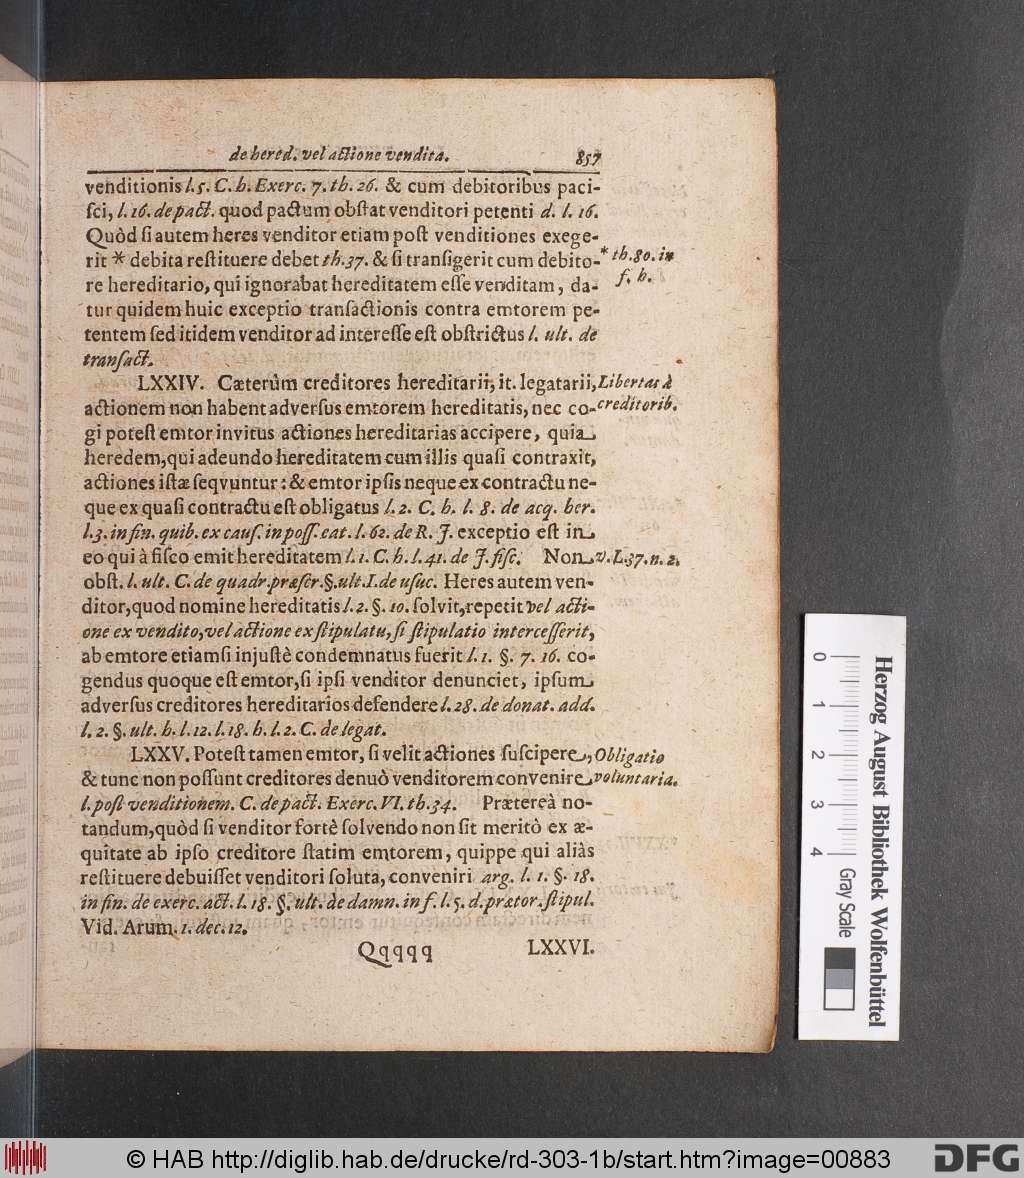 de hered. vel actione vendita. 857
venditionis l. 5. C. h. Exerc. 7. th. 26. & cum debitoribus paci-
ſci, l. 16. de pact. quod pactum obſtat venditori petenti d. l. 16.
Quòd ſi autem heres venditor etiam poſt venditiones exege-
rit * debita reſtituere debet th. 37. & ſi tranſigerit cum debito-
* th. 80. in
f. h.
re hereditario, qui ignorabat hereditatem eſſe venditam, da-
tur quidem huic exceptio tranſactionis contra emtorem pe-
tentem ſed itidem venditor ad intereſſe eſt obſtrictus l. ult. de
tranſact.
LXXIV. Cæterùm creditores hereditarii, it. legatarii,
Libertas à
creditorib.
actionem non habent adverſus emtorem hereditatis, nec co-
gi poteſt emtor invitus actiones hereditarias accipere, quia
heredem, qui adeundo hereditatem cum illis quaſi contraxit,
actiones iſtæ ſeqvuntur: & emtor ipſis neque ex contractu ne-
que ex quaſi contractu eſt obligatus l. 2. C. h. l. 8. de acq. her.
l. 3. in fin. quib. ex cauſ. in poſſ. eat. l. 62. de R. J. exceptio eſt in
eo qui à fiſco emit hereditatem l. 1. C. h. l. 41. de J. fiſc. Non
v. L. 37. n. 2.
obſt. l. ult. C. de quadr. præſcr. §. ult. I. de uſuc. Heres autem ven-
ditor, quod nomine hereditatis l. 2. §. 10. ſolvit, repetit vel acti-
one ex vendito, vel actione ex ſtipulatu, ſi ſtipulatio interceſſerit,
ab emtore etiamſi injuſtè condemnatus fuerit l. 1. §. 7. 16. co-
gendus quoque eſt emtor, ſi ipſi venditor denunciet, ipſum
adverſus creditores hereditarios defendere l. 28. de donat. add.
l. 2. §. ult. h. l. 12. l. 18. h. l. 2. C. de legat.
LXXV. Poteſt tamen emtor, ſi velit actiones ſuſcipere,
Obligatio
voluntaria.
& tunc non poſſunt creditores denuò venditorem convenire
l. poſt venditionem. C. de pact. Exerc. VI. th. 34. Prætereà no-
tandum, quòd ſi venditor fortè ſolvendo non ſit meritò ex æ-
quitate ab ipſo creditore ſtatim emtorem, quippe qui aliàs
reſtituere debuiſſet venditori ſoluta, conveniri arg. l. 1. §. 18.
in fin. de exerc. act. l. 18. §. ult. de damn. in f. l. 5. d. prætor. ſtipul.
Vid. Arum. 1. dec. 12.
Qqqqq LXXVI.
0 1 2 3 4
Gray Scale
Herzog August Bibliothek Wolfenbüttel
© HAB http://diglib.hab.de/drucke/rd-303-1b/start.htm?image=00883
DFG